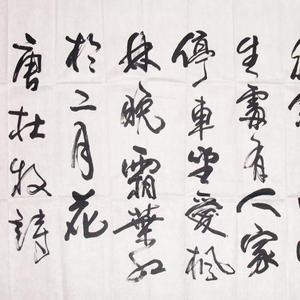 生處有人家
停車坐愛楓
林晚霜葉紅
於二月花
唐杜牧詩